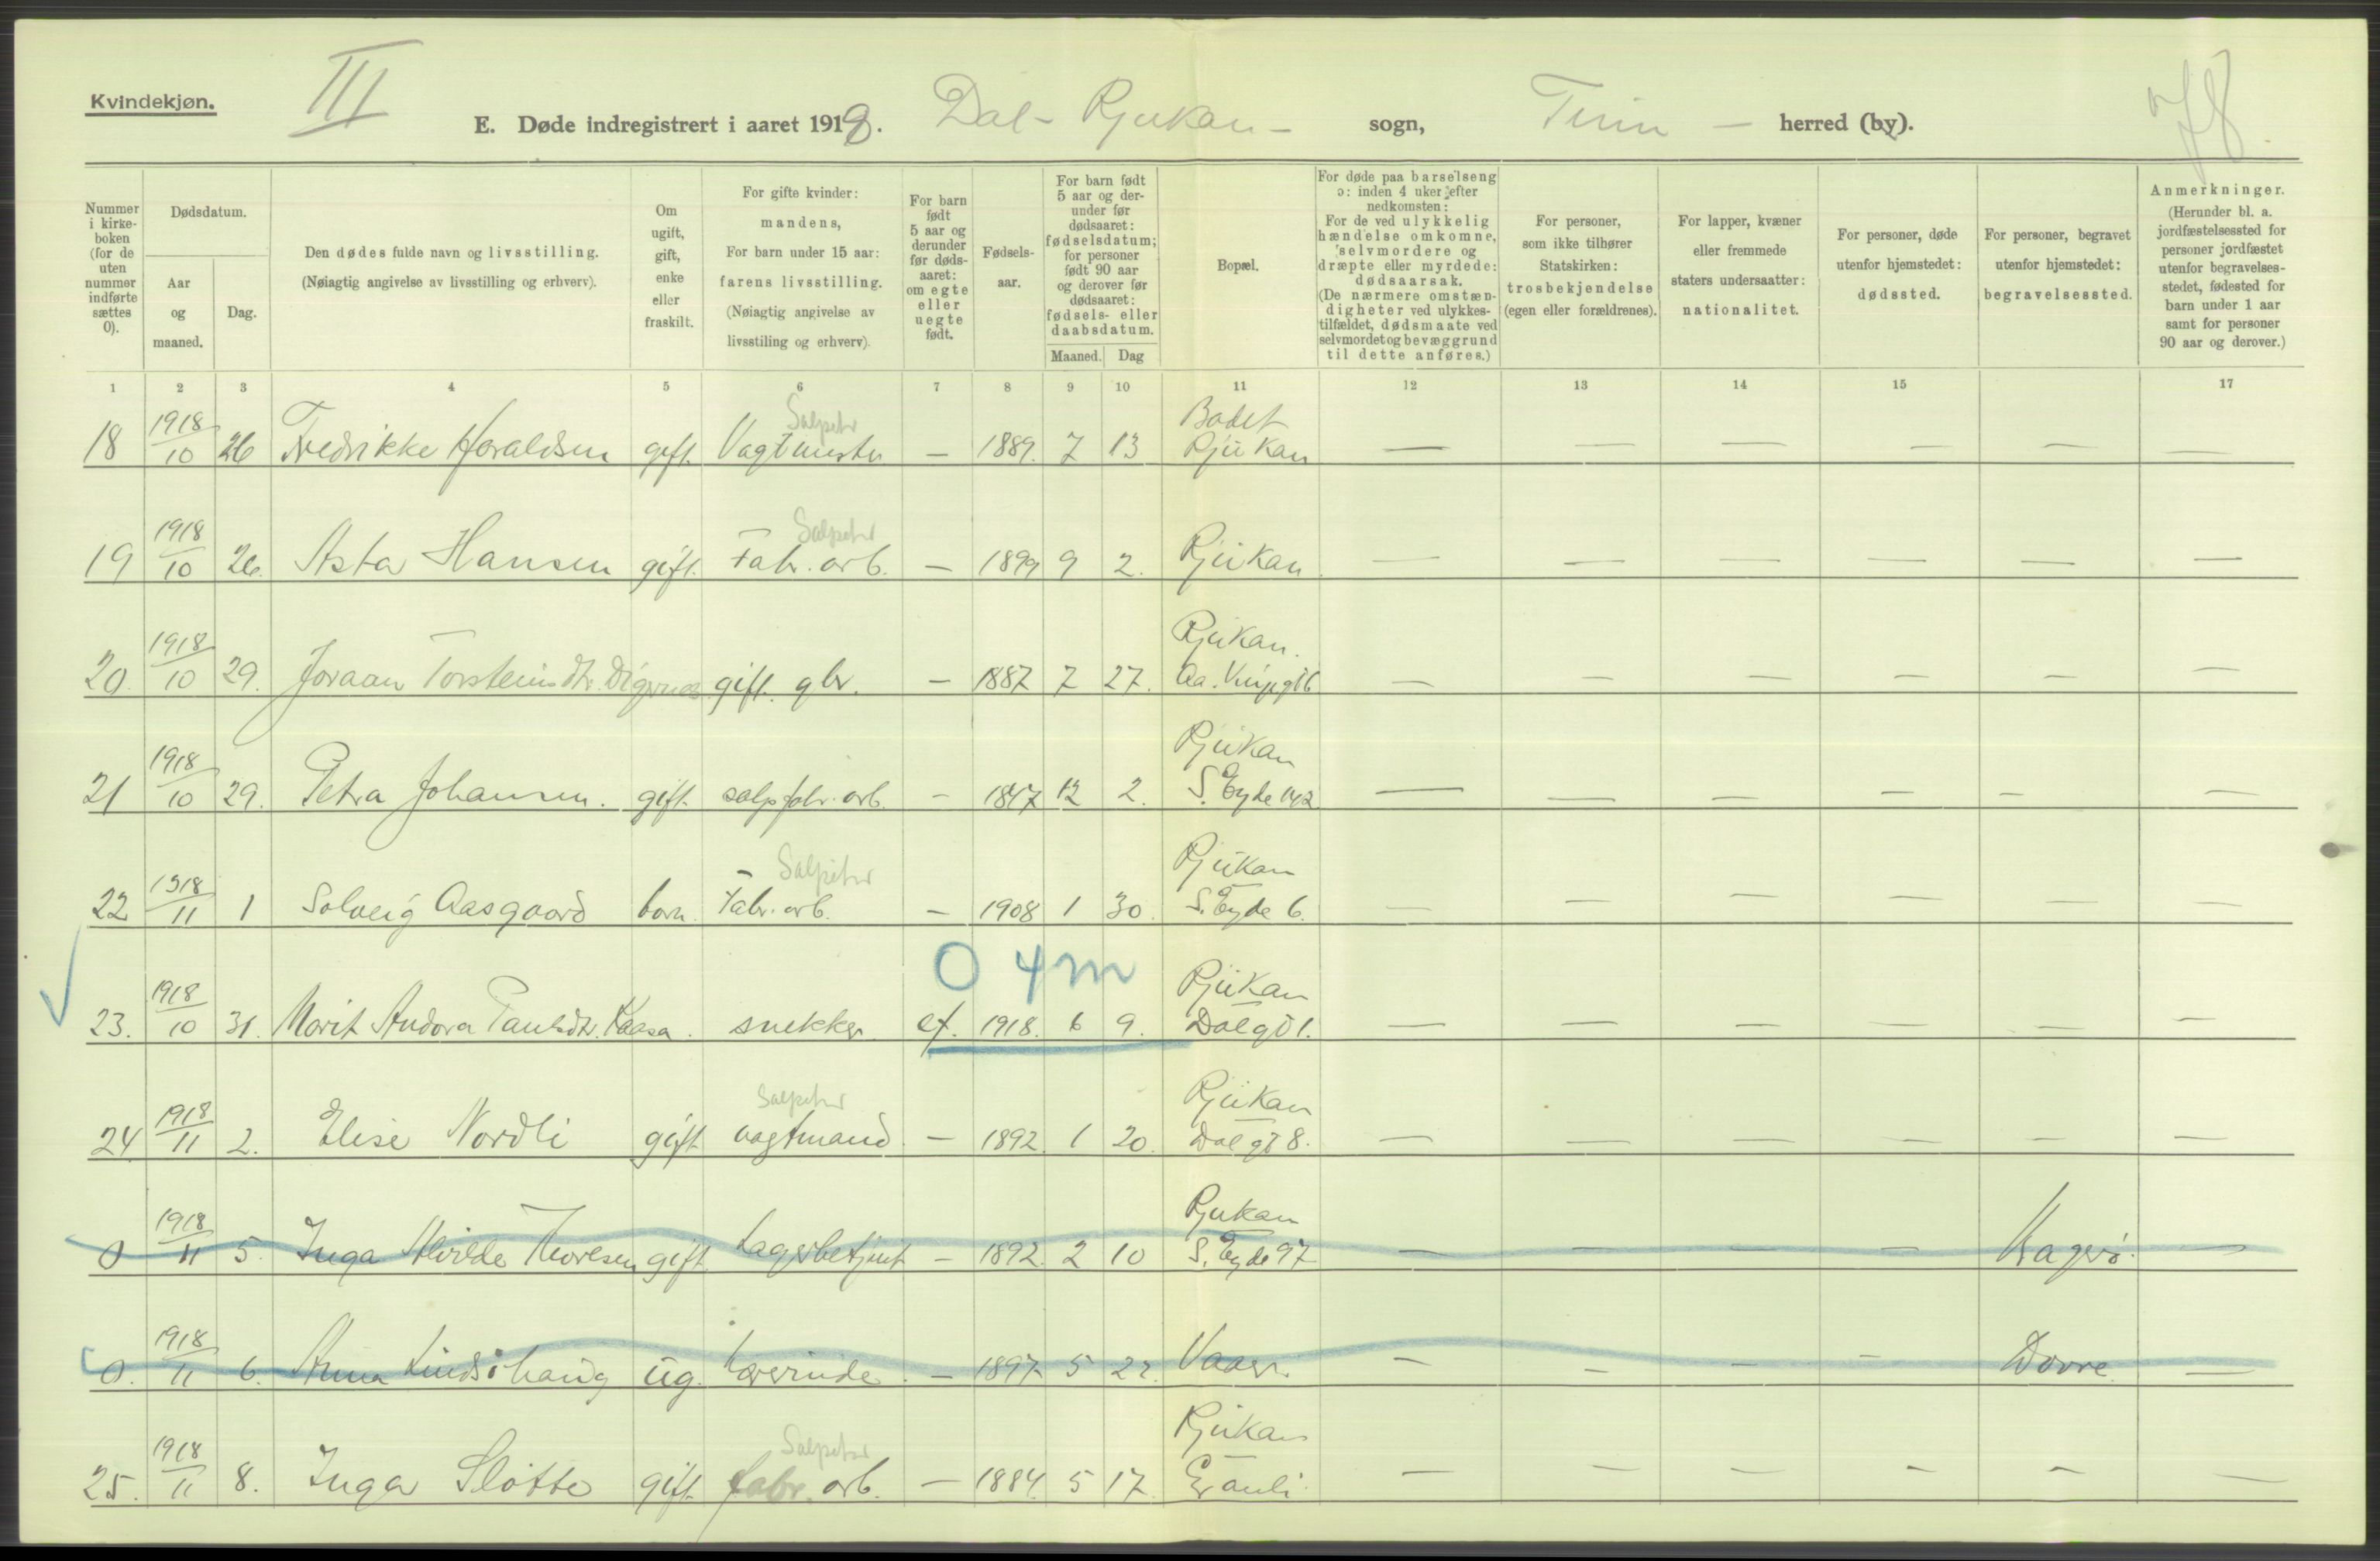 Kvindekjøn.
III
E. Døde indregistrert i aaret 1918. Dal - Rjukan - sogn, Tinn - herred (by).
78.
Nummer i kirke-boken (for de uten nummer indførte sættes 0).
Dødsdatum.
Aar og maaned.
Dag.
Den dødes fulde navn og livsstilling.
(Nøiagtig angivelse av livsstilling og erhverv).
Om ugift, gift, enke eller fraskilt.
For gifte kvinder: mandens,
For barn under 15 aar: farens livsstilling.
(Nøiagtig angivelse av livsstiling og erhverv).
For barn født 5 aar og derunder før døds-aaret: om egte eller uegte født.
Fødsels-aar.
For barn født 5 aar og der-under før dødsaaret: fødselsdatum; for personer født 90 aar og derover før dødsaaret: fødsels- eller daabsdatum.
Maaned. Dag
Bopæl.
For døde paa barselseng ɔ: inden 4 uker efter nedkomsten:
For de ved ulykkelig hændelse omkomne, selvmordere og dræpte eller myrdede: dødsaarsak.
(De nærmere omstæn-digheter ved ulykkes-tilfældet, dødsmaate ved selvmordet og bevæggrund til dette anføres.)
For personer, som ikke tilhører Statskirken: trosbekjendelse (egen eller forældrenes).
For lapper, kvæner eller fremmede staters undersaatter: nationalitet.
For personer, døde utenfor hjemstedet: dødssted.
For personer, begravet utenfor hjemstedet: begravelsessted.
Anmerkninger.
(Herunder bl. a. jordfæstelsessted for personer jordfæstet utenfor begravelses-stedet, fødested for barn under 1 aar samt for personer 90 aar og derover.)
1 2 3 4 5 6 7 8 9 10 11 12 13 14 15 17
18 1918/10 26 Fredrikke Haraldsen gift. Salpeter Vagtmester — 1889. 7 13 Badet Rjukan — — — — — —
19 1918/10 26. Asta Hansen gift. Salpeter Fabr. arb. — 1899 9 2. Rjukan — — — — — —
20. 1918/10 29. Joraan Torsteinsdtr. Digernes gift. gbr. — 1887 7 27. Rjukan. Aa. Vinjegt 6 — — — — — —
21 1918/10 29. Petra Johansen. gift. salp fabr. arb. — 1847 12 2. Rjukan S. Eyde 142 — — — — — —
22 1918/11 1 Solveig Aasgaard barn Salpeter Fabr. arb. — 1908 1 30. Rjukan S. Eyde 6. — — — — — —
0 4 m
23. 1918/10 31. Marit Andora Paulsdtr. Kaasa. snekker. ef. 1918. 6 9. Rjukan Dalegt 1. — — — — — —
24 1918/11 2. Elise Nordli gift Salpeter vagtmand. — 1892. 1 20. Rjukan Dal gt 8. — — — — — —
0 1918/11 5. Inga Alvilde Thoresen gift. Lagerbetjent — 1892. 2 10 Rjukan S. Eyde 97 — — — — Kragerø. —
0. 1918/11 6. Anna ug. Lærerinde. — 1897 5 22. Vaaer. — — — — Dovre. —
25. 1918/11 8. Inga Slotte gift. Salpeter fabr. arb. — 1884. 5 17. Rjukan — — — — — —